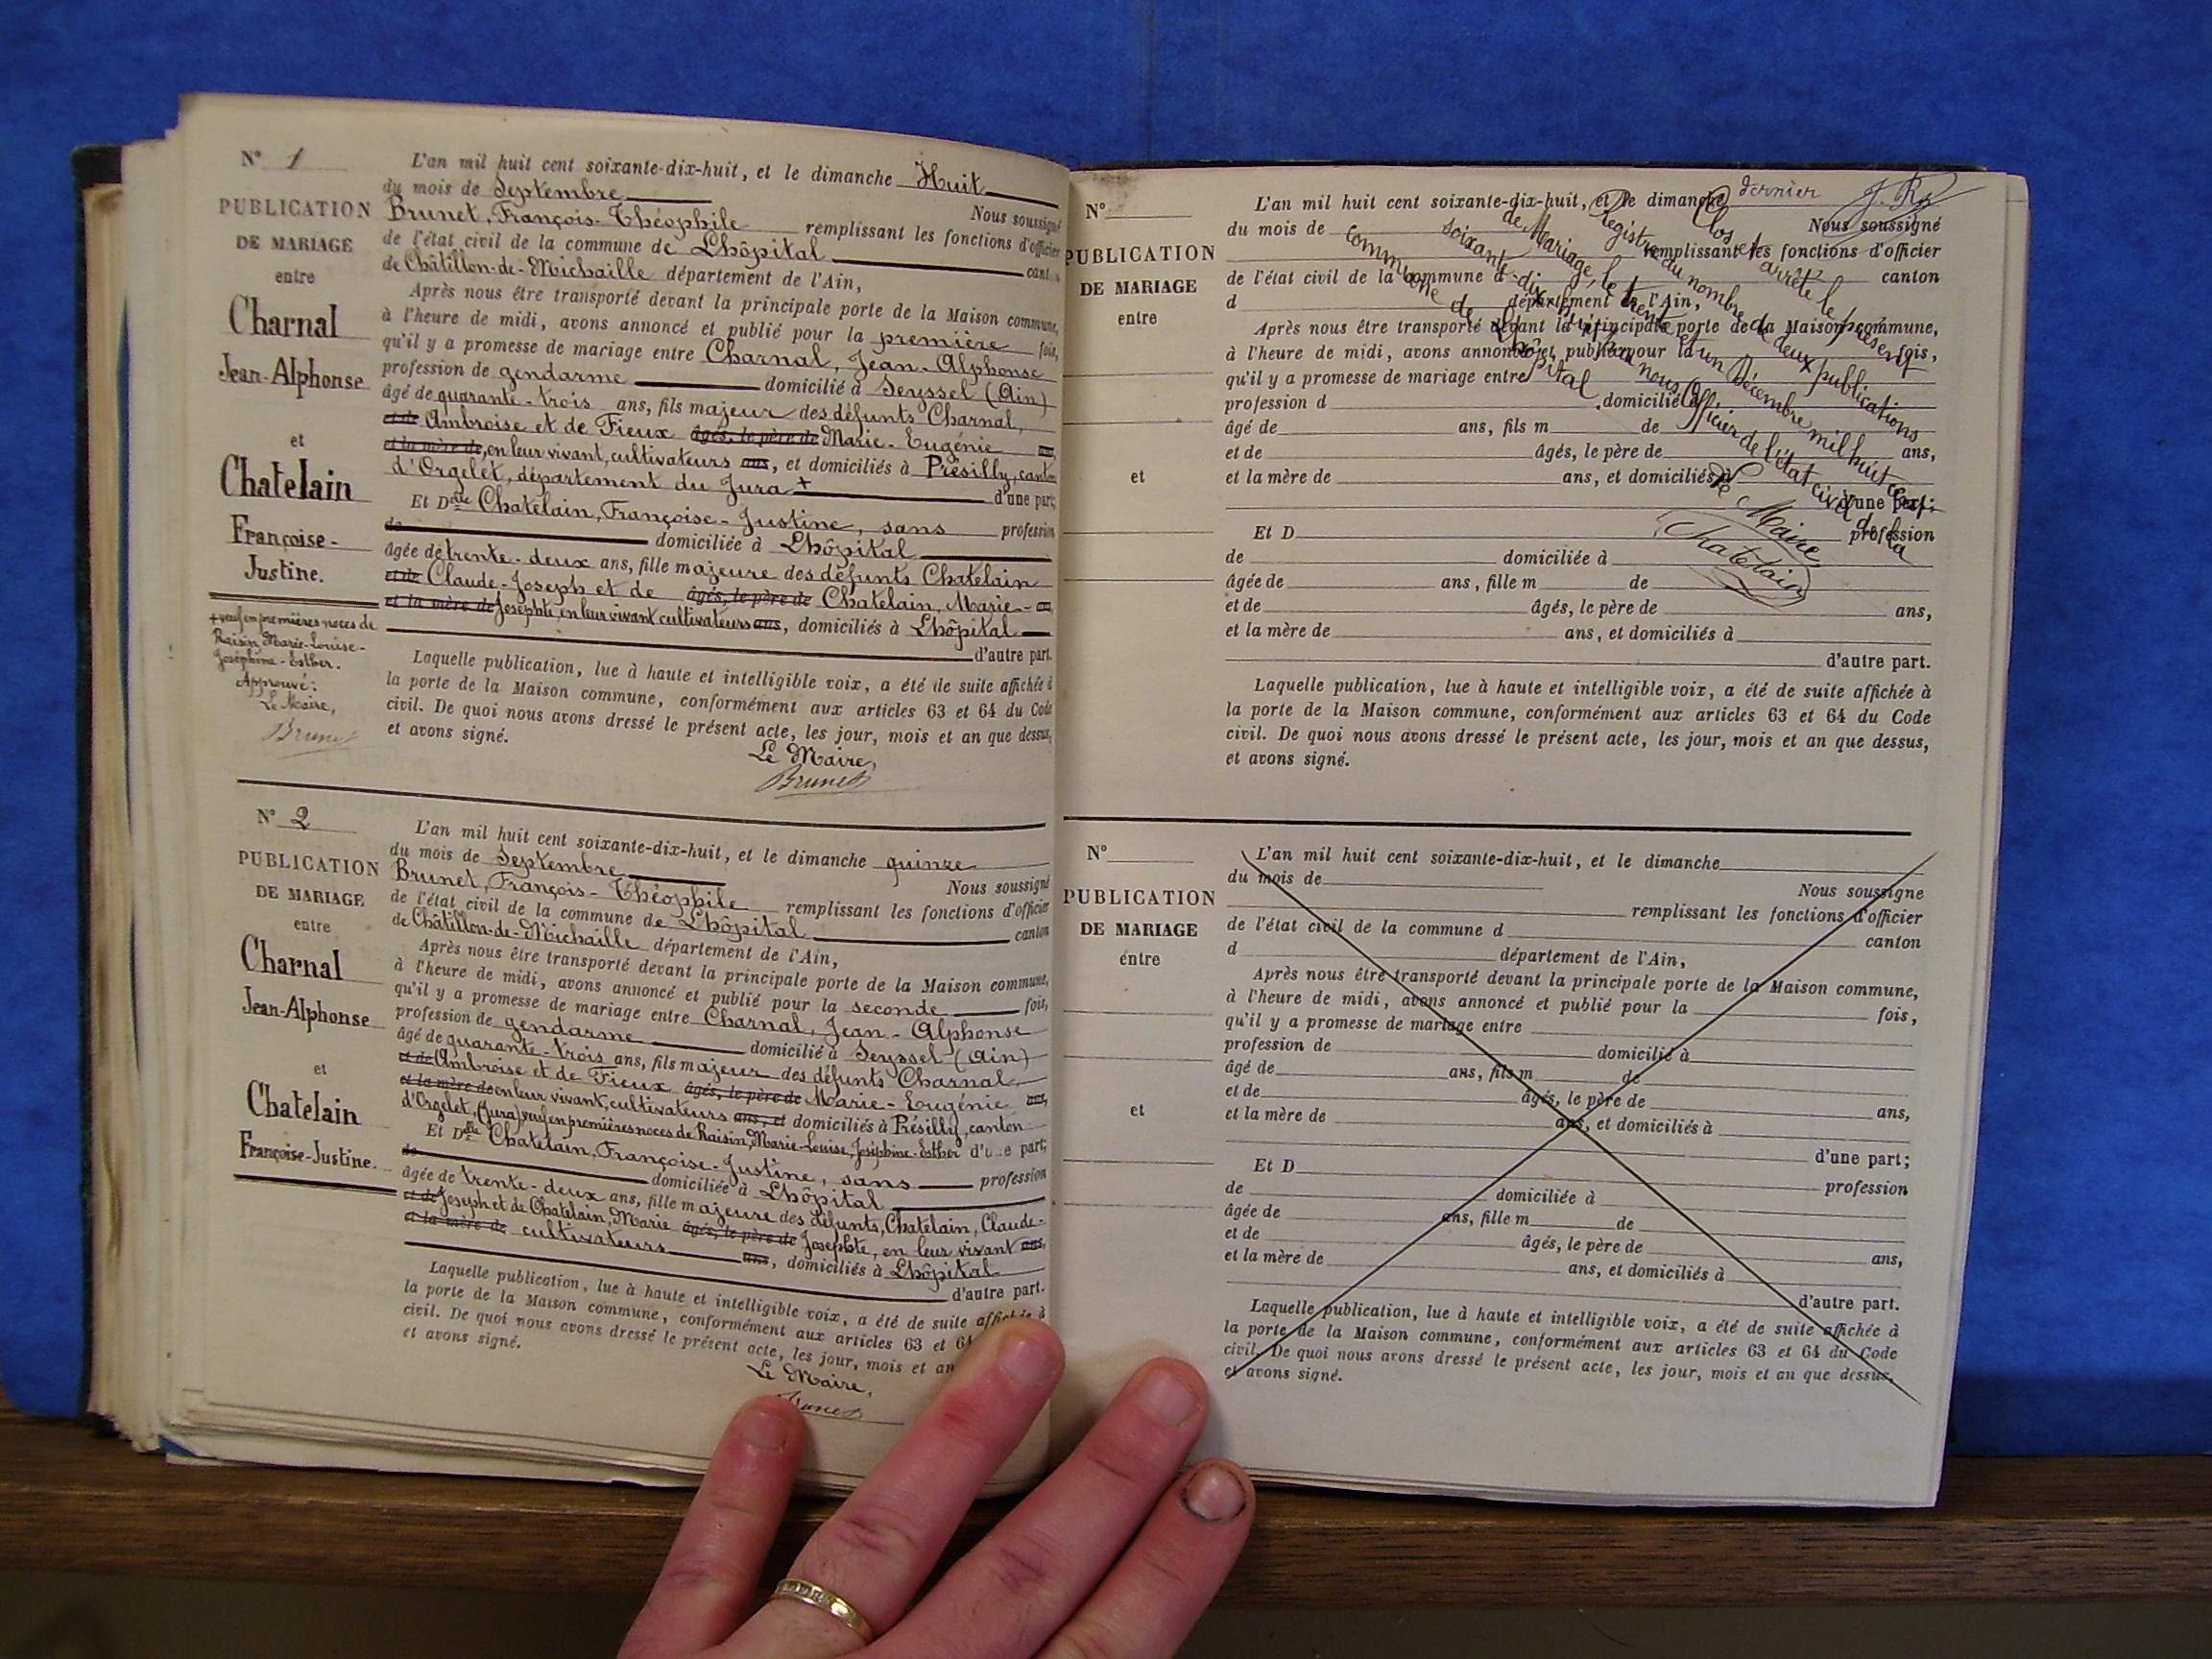 N° 1
PUBLICATION
DE MARIAGE
entre
Charnal
Jean-Alphonse
et
Chatelain
Françoise-
Justine.
+ veuf en premières noces de
Raisin, Marie-Louise-
Joséphine-Esther.
Approuvé:
Le Maire,
Brunet
L'an mil huit cent soixante-dix-huit, et le dimanche Huit
du mois de Septembre Nous soussigné
Brunet, François-Théophile remplissant les fonctions d'officier
de l'état civil de la commune de Lhôpital canton
de Châtillon-de-Michaille département de l'Ain,
Après nous être transporté devant la principale porte de la Maison commune,
à l'heure de midi, avons annoncé et publié pour la première fois,
qu'il y a promesse de mariage entre Charnal, Jean-Alphonse
profession de gendarme domicilié à Seyssel (Ain)
âgé de quarante-trois ans, fils majeur des défunts Charnal,
et de Ambroise et de Fieux âgés, le père de Marie-Eugénie ans,
et la mère de, en leur vivant, cultivateurs ans, et domiciliés à Présilly, canton
d'Orgelet, département du Jura + d'une part;
Et Delle Chatelain, Françoise-Justine, sans profession
de domiciliée à Lhôpital
âgée de trente-deux ans, fille majeure des défunts Chatelain
et de Claude-Joseph et de âgés, le père de Chatelain, Marie- ans,
et la mère de Josephte, en leur vivant cultivateurs ans, domiciliés à Lhôpital
d'autre part.
Laquelle publication, lue à haute et intelligible voix, a été de suite affichée à
la porte de la Maison commune, conformément aux articles 63 et 64 du Code
civil. De quoi nous avons dressé le présent acte, les jour, mois et an que dessus,
et avons signé.
Le Maire,
Brunet
N° 2
PUBLICATION
DE MARIAGE
entre
Charnal
Jean-Alphonse
et
Chatelain
Françoise-Justine.
L'an mil huit cent soixante-dix-huit, et le dimanche quinze
du mois de Septembre Nous soussigné
Brunet, François-Théophile remplissant les fonctions d'officier
de l'état civil de la commune de Lhôpital canton
de Châtillon-de-Michaille département de l'Ain,
Après nous être transporté devant la principale porte de la Maison commune,
à l'heure de midi, avons annoncé et publié pour la seconde fois,
qu'il y a promesse de mariage entre Charnal, Jean-Alphonse
profession de gendarme domicilié à Seyssel (Ain)
âgé de quarante-trois ans, fils majeur des défunts Charnal,
et de Ambroise et de Fieux âgés, le père de Marie-Eugénie ans,
et la mère de en leur vivant, cultivateurs ans, et domiciliés à Présilly, canton
d'Orgelet, (Jura) veuf en premières noces de Raisin, Marie-Louise, Joséphine-Esther d'une part;
Et Delle Chatelain, Françoise-Justine, sans profession
de domiciliée à Lhôpital
âgée de trente-deux ans, fille majeure des défunts, Chatelain, Claude-
et de Joseph et de Chatelain, Marie âgés, le père de Josephte, en leur vivant ans,
et la mère de cultivateurs ans, domiciliés à Lhôpital
d'autre part.
Laquelle publication, lue à haute et intelligible voix, a été de suite affichée à
la porte de la Maison commune, conformément aux articles 63 et 64
civil. De quoi nous avons dressé le présent acte, les jour, mois et an
et avons signé.
Le Maire,
Brunet
dernier
N°
PUBLICATION
DE MARIAGE
entre
et
L'an mil huit cent soixante-dix-huit, et le dimanche
du mois de Nous soussigné
remplissant les fonctions d'officier
de l'état civil de la commune d canton
d département de l'Ain,
Après nous être transporté devant la principale porte de la Maison commune,
à l'heure de midi, avons annoncé et publié pour la fois,
qu'il y a promesse de mariage entre
profession d domicilié à
âgé de ans, fils m de
et de âgés, le père de ans,
et la mère de ans, et domiciliés à
d'une part;
Et D profession
de domiciliée à
âgée de ans, fille m de
et de âgés, le père de ans,
et la mère de ans, et domiciliés à
d'autre part.
Laquelle publication, lue à haute et intelligible voix, a été de suite affichée à
la porte de la Maison commune, conformément aux articles 63 et 64 du Code
civil. De quoi nous avons dressé le présent acte, les jour, mois et an que dessus,
et avons signé.
Clos et arrêté le présent
Registre du nombre de deux publications
de Mariage, le trente et un Décembre mil huit cent
soixante-dix-huit, par nous Officier de l'état civil de la
commune de Lhôpital
Le Maire,
Chatelain
N°
PUBLICATION
DE MARIAGE
entre
et
L'an mil huit cent soixante-dix-huit, et le dimanche
du mois de Nous soussigné
remplissant les fonctions d'officier
de l'état civil de la commune d canton
d département de l'Ain,
Après nous être transporté devant la principale porte de la Maison commune,
à l'heure de midi, avons annoncé et publié pour la fois,
qu'il y a promesse de mariage entre
profession de domicilié à
âgé de ans, fils m de
et de âgés, le père de ans,
et la mère de ans, et domiciliés à
d'une part;
Et D profession
de domiciliée à
âgée de ans, fille m de
et de âgés, le père de ans,
et la mère de ans, et domiciliés à
d'autre part.
Laquelle publication, lue à haute et intelligible voix, a été de suite affichée à
la porte de la Maison commune, conformément aux articles 63 et 64 du Code
civil. De quoi nous avons dressé le présent acte, les jour, mois et an que dessus,
et avons signé.